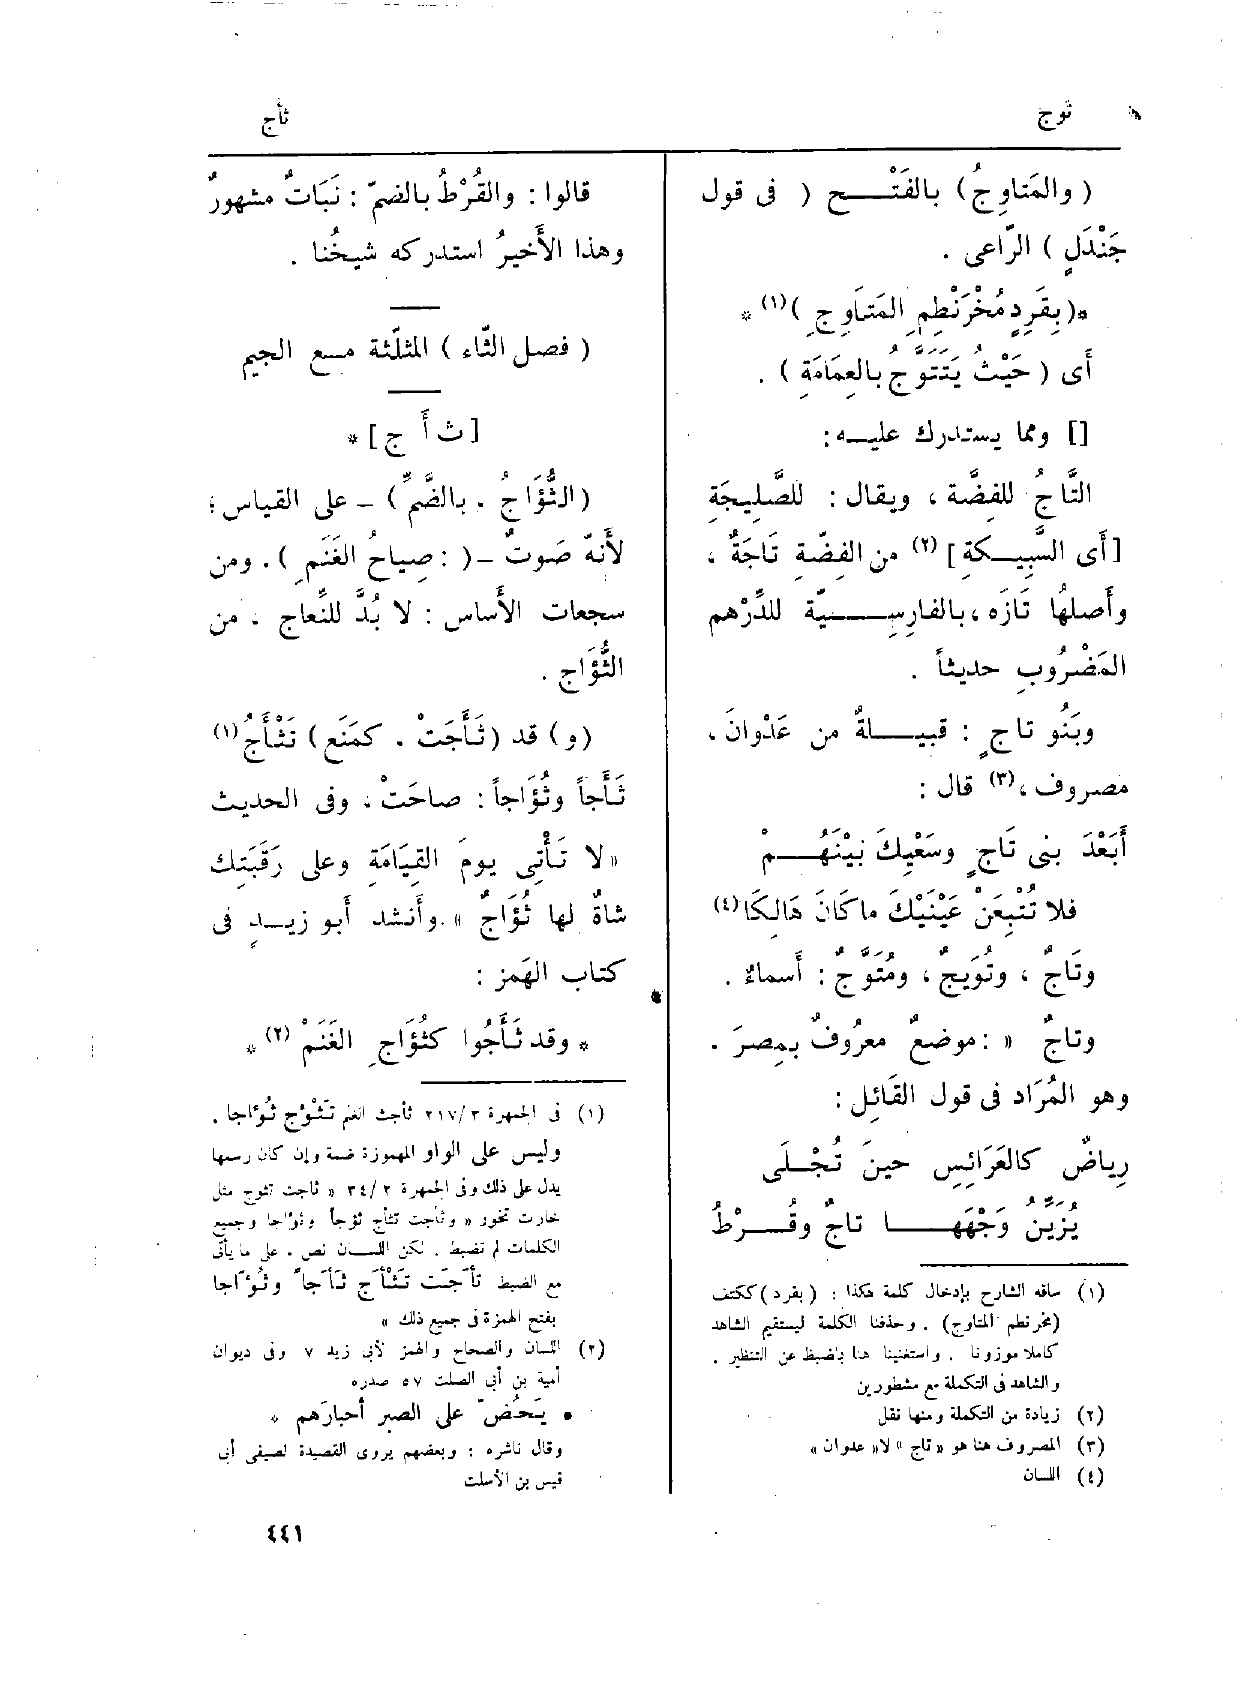 توج
ثأج
(والمَتَاوِجُ) بالفَتْـــح (فى قول
جَنْدَلٍ) الرّاعى .
*(بِقَرِدٍ مُخْرَنْطِمِ المَتَاوِجِ)(١)*
أى (حَيْثُ يَتَتَوَّجُ بالعِمَامَةِ) .
[] ومما يستدرك عليـــه:
التَّاجُ للفِضَّة ، ويقال : للصَّلِيجَةِ
[أى السَّبِيــكة](٢) من الفضّة تَاجَةٌ ،
وأصلهُا تَازَه ،بالفارِسِـــيّة للدِّرْهم
المَضْرُوبِ حديثاً .
وبَنُو تاجٍ : قبيـــلةٌ من عَدْوانَ ،
مصروف ،(٣) قال :
أَبَعْدَ بنى تَاجٍ وسَعْيِكَ بيْنَهُـــمْ
فلا تُتْبِعَنْ عَيْنَيْكَ ماكَانَ هَالِكَا(٤)
وتَاجٌ ، وتُوَيجٌ ، ومُتَوَّجٌ : أسماءٌ .
وتاجٌ « :موضعٌ معرُوفٌ بمِصرَ .
وهو المُرَاد فى قول القَائل :
رِياضٌ كالعَرَائِسِ حينَ تُجْـلَى
يُزَيِّنُ وَجْهَهَـــا تاجٌ وقُـــرْطُ
(١) ساقه الشارح بإدخال كلمة هكذا : (بقرد) ككتف
(مخرنطم المتاوج) . وحذفنا الكلمة ليستقيم الشاهد
كاملا موزونا . واستغنينا هنا بالضبط عن التنظير .
والشاهد فى التكملة مع مشطورين
(٢) زيادة من التكملة ومنها نقل
(٣) المصروف هنا هو «تاج» لا «عدوان»
(٤) اللسان
قالوا : والقُرْطُ بالضمّ : نَبَاتٌ مشهورٌ
وهذا الأَخيرُ استدركه شيخُنا .
(فصل الثّاء) المثلّثة مــع الجيم
[ث أ ج]*
(الثُّؤَاجُ . بالضَّمِّ) ــ على القياس ؛
لأَنهّ صَوتٌ ــ (: صِياحُ الغَنَمِ) . ومن
سجعات الأَساس : لا بُدَّ للنِّعاج . من
الثُّؤَاج .
(و) قد (ثَأَجَتْ . كمَنَع) تَثْأَجُ(١)
ثَأْجاً وثُؤَاجاً : صاحَتْ ، وفى الحديث
«لا تَأْتِى يومَ القِيَامَةِ وعلى رَقَبَتِك
شاةٌ لها ثُؤَاجٌ» .وأَنشد أَبو زيـــدٍ فى
كتاب الهَمز :
* وقد ثَأَجُوا كثُؤَاجِ الغَنَمْ(٢) *
(١) فى الجمهرة ٢١٧/٣ ثأجت الغم تَثْؤج ثُؤاجا .
وليس على الواو المهموزة ضمة وإن كان رسمها
يدل على ذلك وفى الجمهرة ٣٤/٢ «ثاجت تثوج مثل
خارت تخور» وثأجت تثأج ثؤجا وثؤاجا وجميع
الكلمات لم تضبط . لكن اللســـان نص . على ما يأتى
مع الضبط ثأجَت تَثْأَج ثَأَجاً وثُؤاجا
بفتح الهمزة فى جميع ذلك »
(٢) اللسان والصحاح والهمز لأبى زيد ٧ وفى ديوان
أمية بن أبى الصلت ٥٧ صدره
• يَحُضّ على الصبر أحبارَهم *
وقال ناشره : وبعضهم يروى القصيدة لصيفى أبى
قيس بن الأسلت
٤٤١